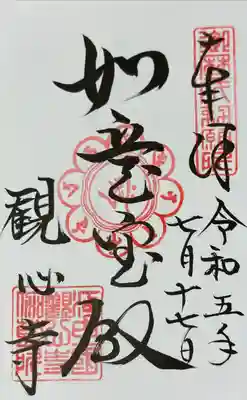 奉拝
令和五年
七月十七日
如意宝殿
観心寺